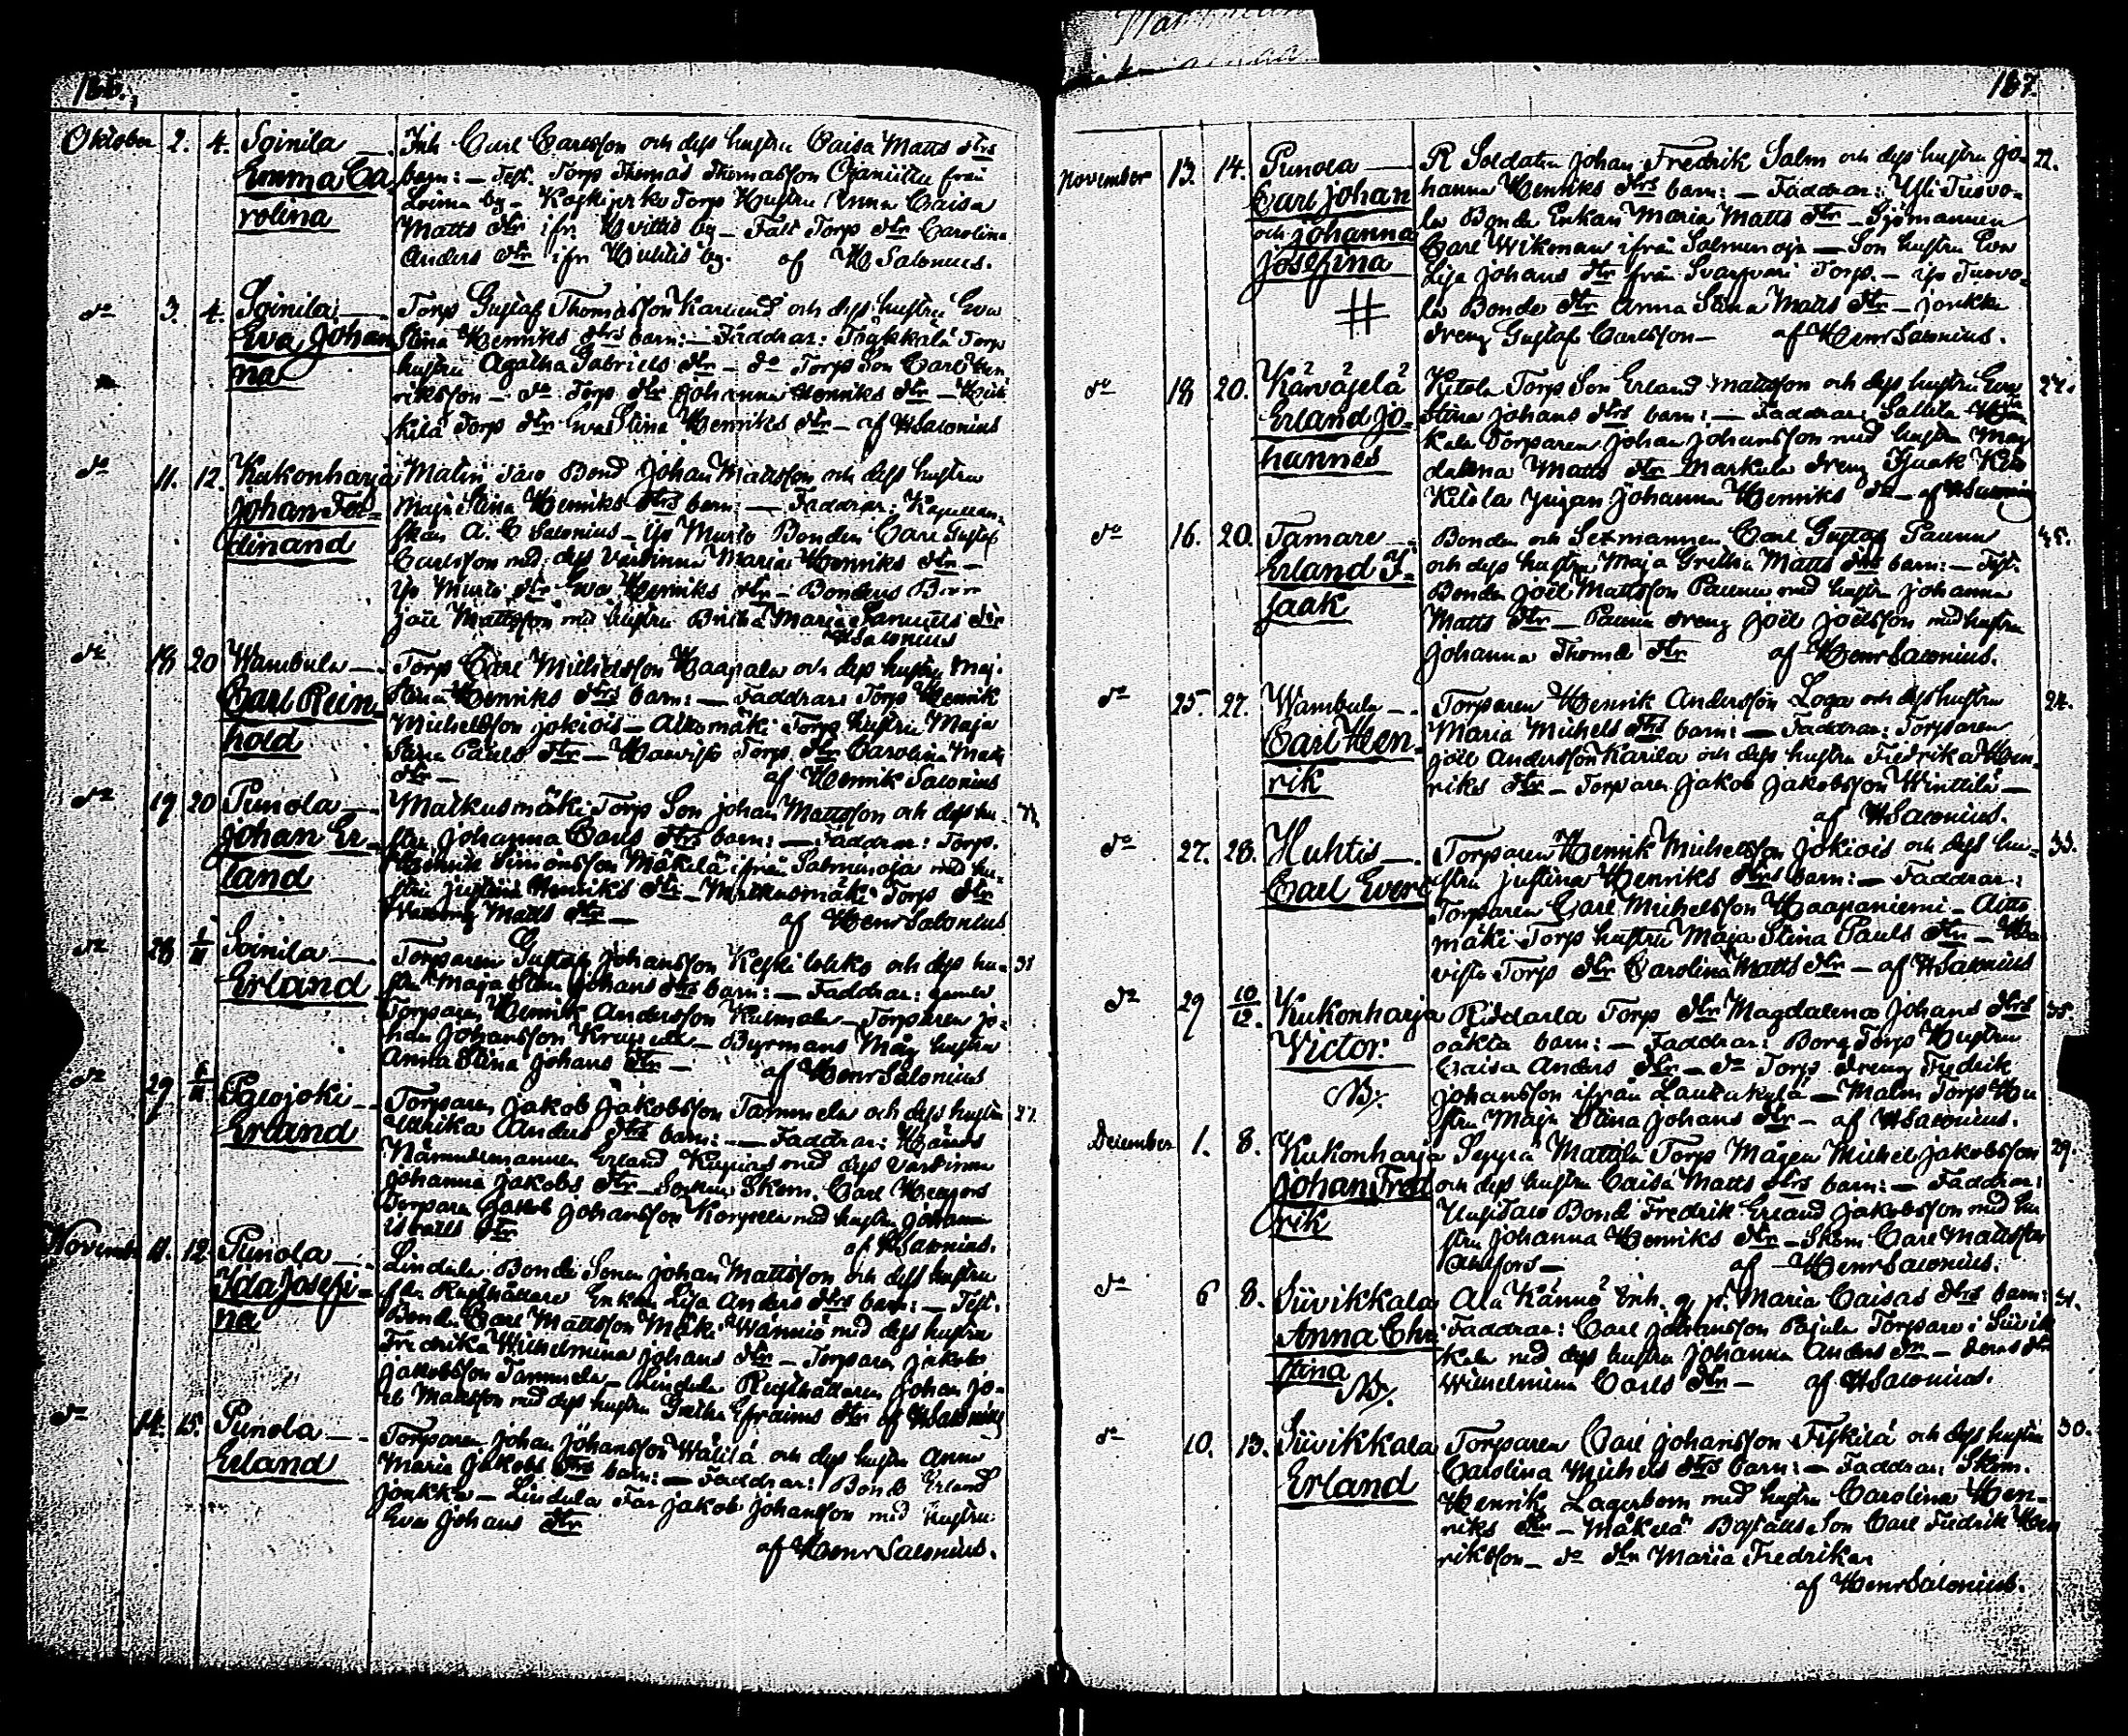 186.
Oktober 2. 4. Soinila — Inh Carl Carlsson och dess hustru Caisa Matts dtrs
Emma Ca- barn: — Test. Torp Thomas Thomasson Ojaniittu från
rolina Loima by — Koskijerkko Torp Hustru Anna Caisa
Matts dtr ifr Hvittis by — Torp dtr Carolina
Anders dtr ifr Huhtis by. af H Salonius.
do 3. 4. Soinila — Torp Gustaf Thomasson Karlund och dess hustru Eva
Eva Johan Stina Henriks dtrs barn: — Faddrar: Torp
na hustru Agatha Gabriels dtr — do Torp Son Carl Hen
riksson — do Torp dtr Johanna Henriks dtr —
kilä Torp dtr Eva Stina Henriks dtr — af H Salonius
do 11. 12. Kukonharja Matin Taro Bond Johan Mattsson och dess hustru
Johan Fer- Maja Stina Henriks dtrs barn: — Faddrar: Kapellan-
dinand skan A. C Salonius — Yso Murto Bonden Carl Gustaf
Carlsson med dess värdinna Maria Henriks dtr —
Yso Murto dtr Eva Henriks dtr — Bondens
Joel Mattsson med hustru Britha Maria Samuels dtr
H Salonius
do 18 20 Wambula — Torp Carl Michelsson Haapala och dess hustru Maj.
Carl Rein- Stina Henriks dtrs barn: — Faddrar: Torp Henrik
hold Michelsson Jokiois — Aittomäki Torp hustru Maja
Stina Pauls dtr — Torp dtr Carolina Matts
dtr — af Henrik Salonius
do 19 20 Punola — Matkusmäki Torp Son Johan Mattsson och dess hu-
Johan Er- stru Johanna Carls dtrs barn: — Faddrar: Torp.
land Henrik Simonsson Mäkelä ifrån Salminoja med hu-
stru Justina Henriks dtr — Matkusmäki Torp dtr
Matts dtr — af Henr Salonius
do 28 1/11 Soinila — Torparen Gustaf Johansson och dess hu- 31
Erland stru Maja Stina Johans dtrs barn: — Faddrar: gamla
Torparen Henrik Andersson Kulmala — Torparen Jo-
han Johansson — Byrmans Måg hustru
Anna Stina Johans dtr — af Henr Salonius
do 29 1/11 Pawojoki — Torparen Jakob Jakobsson Tammela och dess hustru 27.
Erland Ulrika Anders dtrs barn: — Faddrar: Härads
Nämndemannen Erland med dess värdinna
Johanna Jakobs dtr — Socken Skom. Carl
Torparen Jakob Johansson Korpela med hustru Johanna
Israels dtr af H Salonius.
November 11. 12 Punola — Lindula Bonde Sonen Johan Mattsson och dess hustru
Ida Josefi- Rusthållare Enkan Lisa Anders dtrs barn: — Test.
na Bonde Carl Mattsson Mäki Wänniö med dess hustru
Fredrika Wilhelmina Johans dtr — Torparen Jakob
Jakobsson Tammela — Lindula Rusthållaren Johan Ja-
cob Mattsson med dess hustru Gretha Efraims dtr af H Salonius
do 14. 15. Punola — Torparen Johan Johansson Wälilä och dess hustru Anna
Erland Maria Jakobs dtrs barn: — Faddrar: Bond Erland
Jonkka — Lindula Far Jakob Johansson med hustru
Eva Johans dtr
af Henr Salonius.
187.
November 13. 14. Punola — R Soldaten Johan Fredrik Salm och dess hustru Jo- 22.
Carl Johan hanna Henriks dtrs barn: — Faddrar: Yli Tuovo-
och Johanna la Bonde Enkan Maria Matts dtr — Sjömannen
Josefina Carl Wikman ifrån Salminoja — Son hustru Eva
# Lisa Johans dtr från Torp. — Yso Tuovo-
la Bonde dtr Anna Stina Matts dtr — Jonkka
dreng Gustaf Carlsson — af Henr Salonius.
do 18 20. Karväjelä Kitola Torp Son Erland Mattsson och dess hustru Eva
Erland Jo- Stina Johans dtrs barn: — Faddrar: Sallila
hannes Torparen Johan Johansson med hustru Mag
dalena Matts dtr — Markula dreng Isaak
Kitola pigan Johanna Henriks dtr — af H Salonius
do 16. 20. Tamare — Bonden och Sexmannen Carl Gustaf Paunu
Erland I- och dess hustru Maja Gretha Matts dtrs barn: — Test.
saak Bonden Joël Mattsson Paunu med hustru Johanna
Matts dtr — Paunu dreng Joël Joëlsson med hustru
Johanna Thomæ dtr af Henr Salonius.
do 25. 27. Wambula — Torparen Henrik Andersson Loga och dess hustru 24.
Carl Hen- Maria Michels dtrs barn: — Faddrar: Torparen
rik Joël Andersson Karila och dess hustru Fredrika Hen-
riks dtr — Torparen Jakob Jakobsson Winttilä —
af H Salonius.
do 27. 28. Huhtis — Torparen Henrik Michelsson Jokiois och dess hu- 33.
Carl Evert stru Justina Henriks dtrs barn: — Faddrar:
Torparen Carl Michelsson Haapaniemi — Aitto
mäki Torp hustru Maja Stina Pauls dtr — Ha-
visto Torp dtr Carolina Matts dtr — af H Salonius
do 29 10/12. Kukonharja Riddarla Torp dtr Magdalena Johans dtrs 35.
Victor. oäkta barn: — Faddrar: Borg Torp Hustru
NB. Caisa Anders dtr — do Torp dreng Fredrik
Johansson ifrån Lautakylä — Malm Torp Hu
stru Maja Stina Johans dtr — af H Salonius.
December 1. 8. Kukonharja Seppä Mattila Torp Mågen Michel Jakobsson 29.
Johan Fred och dess hustru Caisa Matts dtrs barn: — Faddrar:
rik Uusitalo Bond Fredrik Erland Jakobsson med hu
stru Johanna Henriks dtr — Skom Carl Mattsson
af Henr Salonius.
do 6 8. Siivikkala Ala Kännö Inh. q. p. Maria Caisas dtrs barn:
Anna Chri Faddrar: Carl Johansson Pajula Torpare i Siivik
stina kala med dess hustru Johanna Anders dtr — deras dtr
NB. Wilhelmina Carls dtr — af H Salonius.
do 10. 13. Siivikkala Torparen Carl Johansson Fiskilä och dess hustru 30.
Erland Carolina Michels dtrs barn: — Faddrar: Skom.
Henrik Lagerbom med hustru Carolina Hen-
riks dtr — Mäkelä Son Carl Fredrik Hen
riksson — do dtr Maria Fredrika
af Henr Salonius.